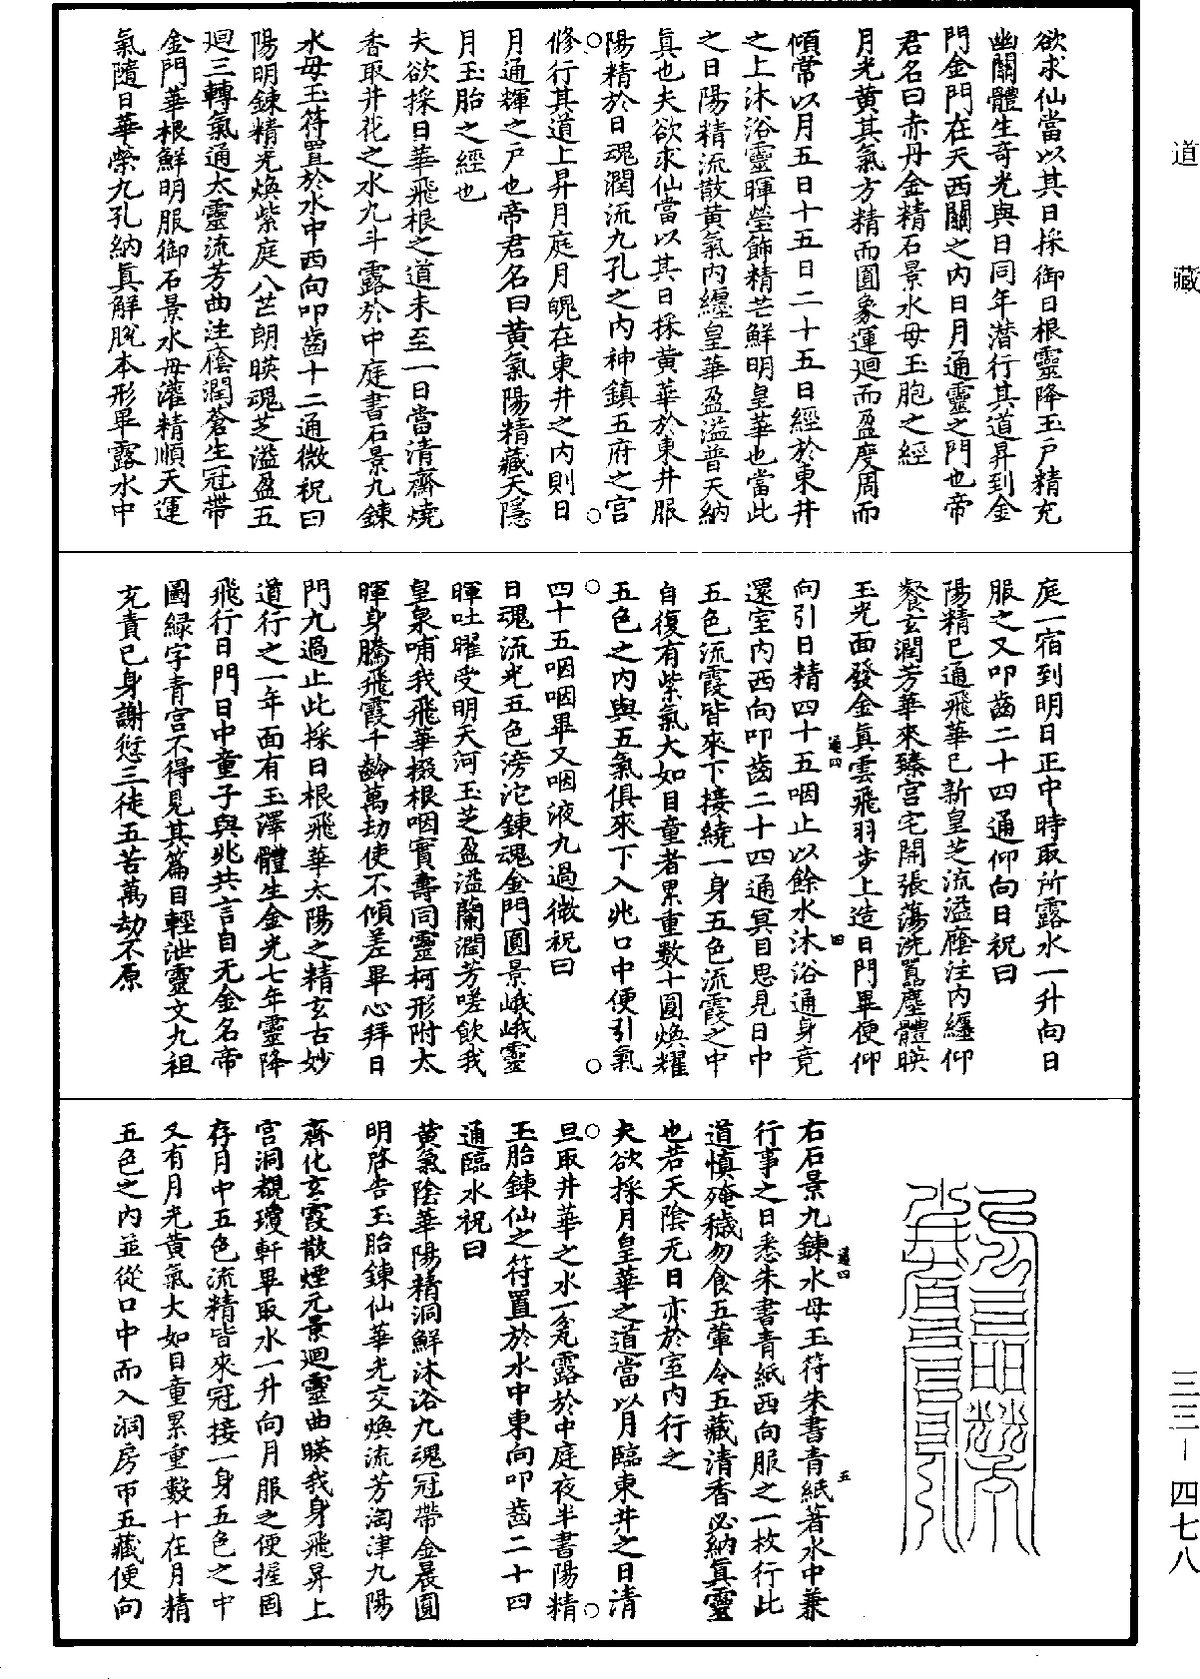 道藏
欲求仙當以其日採御日根靈降玉戶精充
幽關體生奇光與日同年潛行其道昇到金
門金門在天西關之内日月通靈之門也帝
君名曰赤丹金精石景水母玉胞之經
月光黄其氣方精而圓象運迴而盈度周而
傾常以月五日十五日二十五日經於東井
之上沐浴靈暉瑩飾精芒鮮明皇華也當此
之日陽精流散黄氣内纏皇華盈溢普天納
真也夫欲求仙當以其日採黄華於東井服
陽精於日魂潤流九孔之内神鎮五府之宫
修行其道上昇月庭月魄在東井之内則日
月通輝之戶也帝君名曰黄氣陽精藏天隱
月玉胎之經也
夫欲採日華飛根之道未至一日當清齋燒
香取井花之水九斗露於中庭書石景九鍊
水母玉符置於水中西向叩齒十二通微祝曰
陽明鍊精光煥紫庭八芒朗暎魂芝溢盈五
迴三轉氣通太靈流芳曲注廕潤蒼生冠帶
金門華根鮮明服御石景水母灌精順天運
氣隨日華榮九孔納真解脫本形畢露水中
庭一宿到明日正中時取所露水一升向日
服之又叩齒二十四通仰向日祝曰
陽精已通飛華已新皇芝流溢廕注内纏仰
餐玄潤芳華來臻宫宅開張蕩洗囂塵體暎
玉光面發金真雲飛羽步上造日門畢便仰
向引日精四十五咽止以餘水沐浴通身竟
還室内西向叩齒二十四通冥目思見日中
五色流霞皆來下接繞一身五色流霞之中
自復有紫氣大如目童者累重數十圓煥耀
五色之内與五氣俱來下入兆口中便引氣
四十五咽咽畢又咽液九過微祝曰
日魂流光五色滂沱鍊魂金門圓景峨峨靈
暉吐曜受明天河玉芝盈溢蘭潤芳嗟飲我
皇泉哺我飛華掇根咽實壽同靈柯形附太
暉身騰飛霞千齡萬劫使不傾差畢心拜日
門九過止此採日根飛華太陽之精玄古妙
道行之一年面有玉澤體生金光七年靈降
飛行日門日中童子與兆共言自无金名帝
圖緑字青宫不得見其篇目輕泄靈文九祖
充責已身謝愆三徒五苦萬劫不原
右石景九鍊水母玉符朱書青紙著水中兼
行事之日悉朱書青紙西向服之一枚行此
道慎殗穢勿食五葷令五藏清香必納真靈
也若天陰无日亦於室内行之
夫欲採月皇華之道當以月臨東井之日清
旦取井華之水一瓮露於中庭夜半書陽精
玉胎鍊仙之符置於水中東向叩齒二十四
通臨水祝曰
黄氣陰華陽精洞鮮沐浴九魂冠帶金晨圓
明啓告玉胎鍊仙華光交煥流芳淘津九陽
齊化玄霞散煙元景迴靈曲暎我身飛昇上
宫洞覩瓊軒畢取水一升向月服之便握固
存月中五色流精皆來冠接一身五色之中
又有月光黄氣大如目童累重數十在月精
五色之内並從口中而入洞房帀五藏便向
三三－四七八